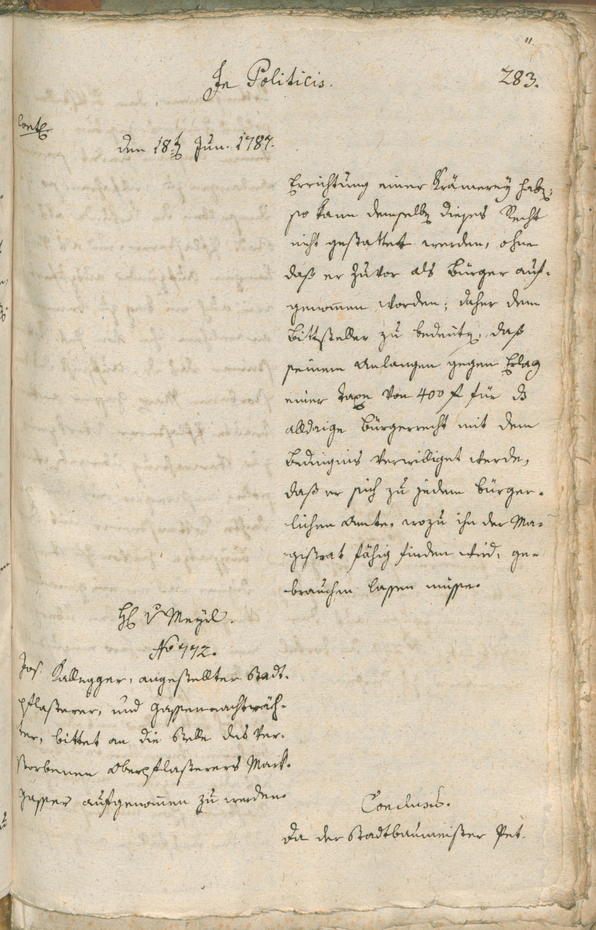 In Politicis.
283.
Cont.
den 18t Jun. 1787.
Errichtung einer Krämerey hab,
so kann demselb dieses Recht
nicht gestattet werden, ohne
daß er zuvor als Bürger auf-
genommen worden; daher dem
Bittsteller zu bedeute, daß
seinem Anlangen gegen Erlag
einer taxe von 400 f für
alldaige Bürgerrecht mit dem
Bedingniß verwilliget werde,
daß er sich zu jedem bürger-
lichen Amte, wozu ihn der Ma-
gistrat fähig finden wird, ge-
brauchen lassen müsse.
H v Meyil.
No 772.
Jos angestellter Stadt-
pflasterer, und Gassennachtwäch-
ter, bittet an die Stelle des ver-
storbenen Oberpflasterers Mark
Gasser aufgenommen zu werden.
Conclusum.
Da der Stadtbaumeister Pet.